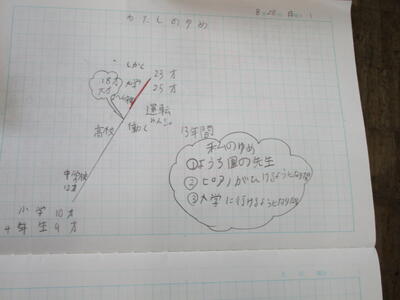 わたしのゆめ
しかく
23才
大学
25才
18才
運転
めんきょ
高校
働く
13年間
中学校
12才
小学 10才
4年生 9才
私のゆめ
①ようち園の先生
②ピアノがひけるようになりたい
③大学に行けるようになりたい